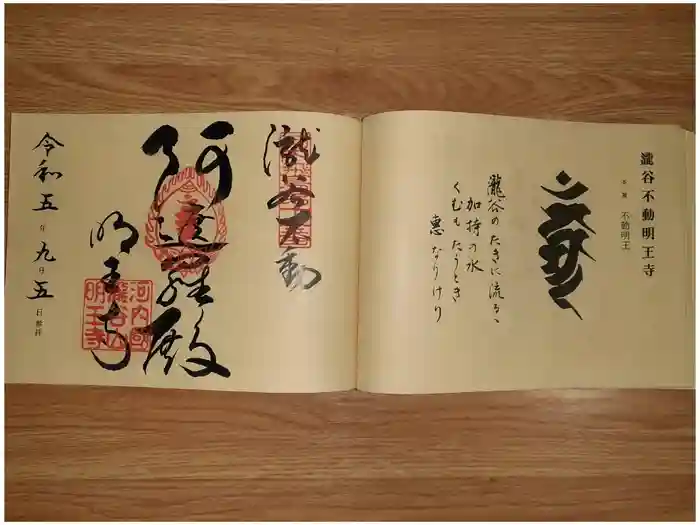 瀧谷不動明王寺
本尊 不動明王
瀧谷のたきに流るゝ
加持の水
くむもたうとき
恵なりけり
瀧谷不動
阿遮羅殿
明王寺
河内國
瀧谷山
明王寺
令和五年九月五日